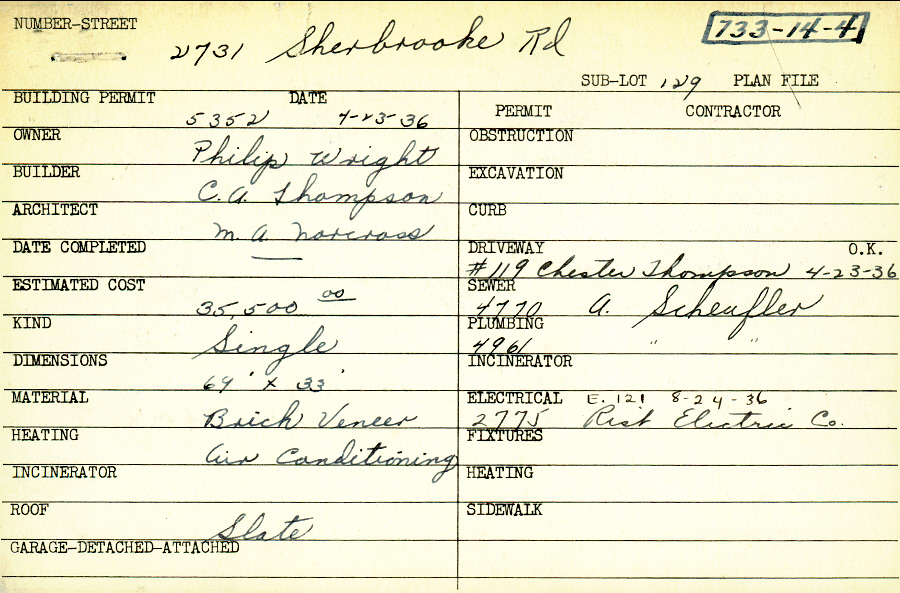 NUMBER-STREET
2731 Sherbrooke Rd
733-14-4
SUB-LOT 129 PLAN FILE
BUILDING PERMIT DATE
5352 4-23-36
OWNER
Philip Wright
BUILDER
C.A. Thompson
ARCHITECT
M. A. Norcross
DATE COMPLETED
—
ESTIMATED COST
35,500 00
KIND
Single
DIMENSIONS
69' x 33'
MATERIAL
Brick Veneer
HEATING
Air Conditioning
INCINERATOR
ROOF
Slate
GARAGE-DETACHED-ATTACHED
PERMIT CONTRACTOR
OBSTRUCTION
EXCAVATION
CURB
DRIVEWAY O.K.
#119 Chester Thompson 4-23-36
SEWER
4770 A. Scheufler
PLUMBING
4961 " "
INCINERATOR
ELECTRICAL E. 121 8-24-36
2775 Rist Electric Co.
FIXTURES
HEATING
SIDEWALK